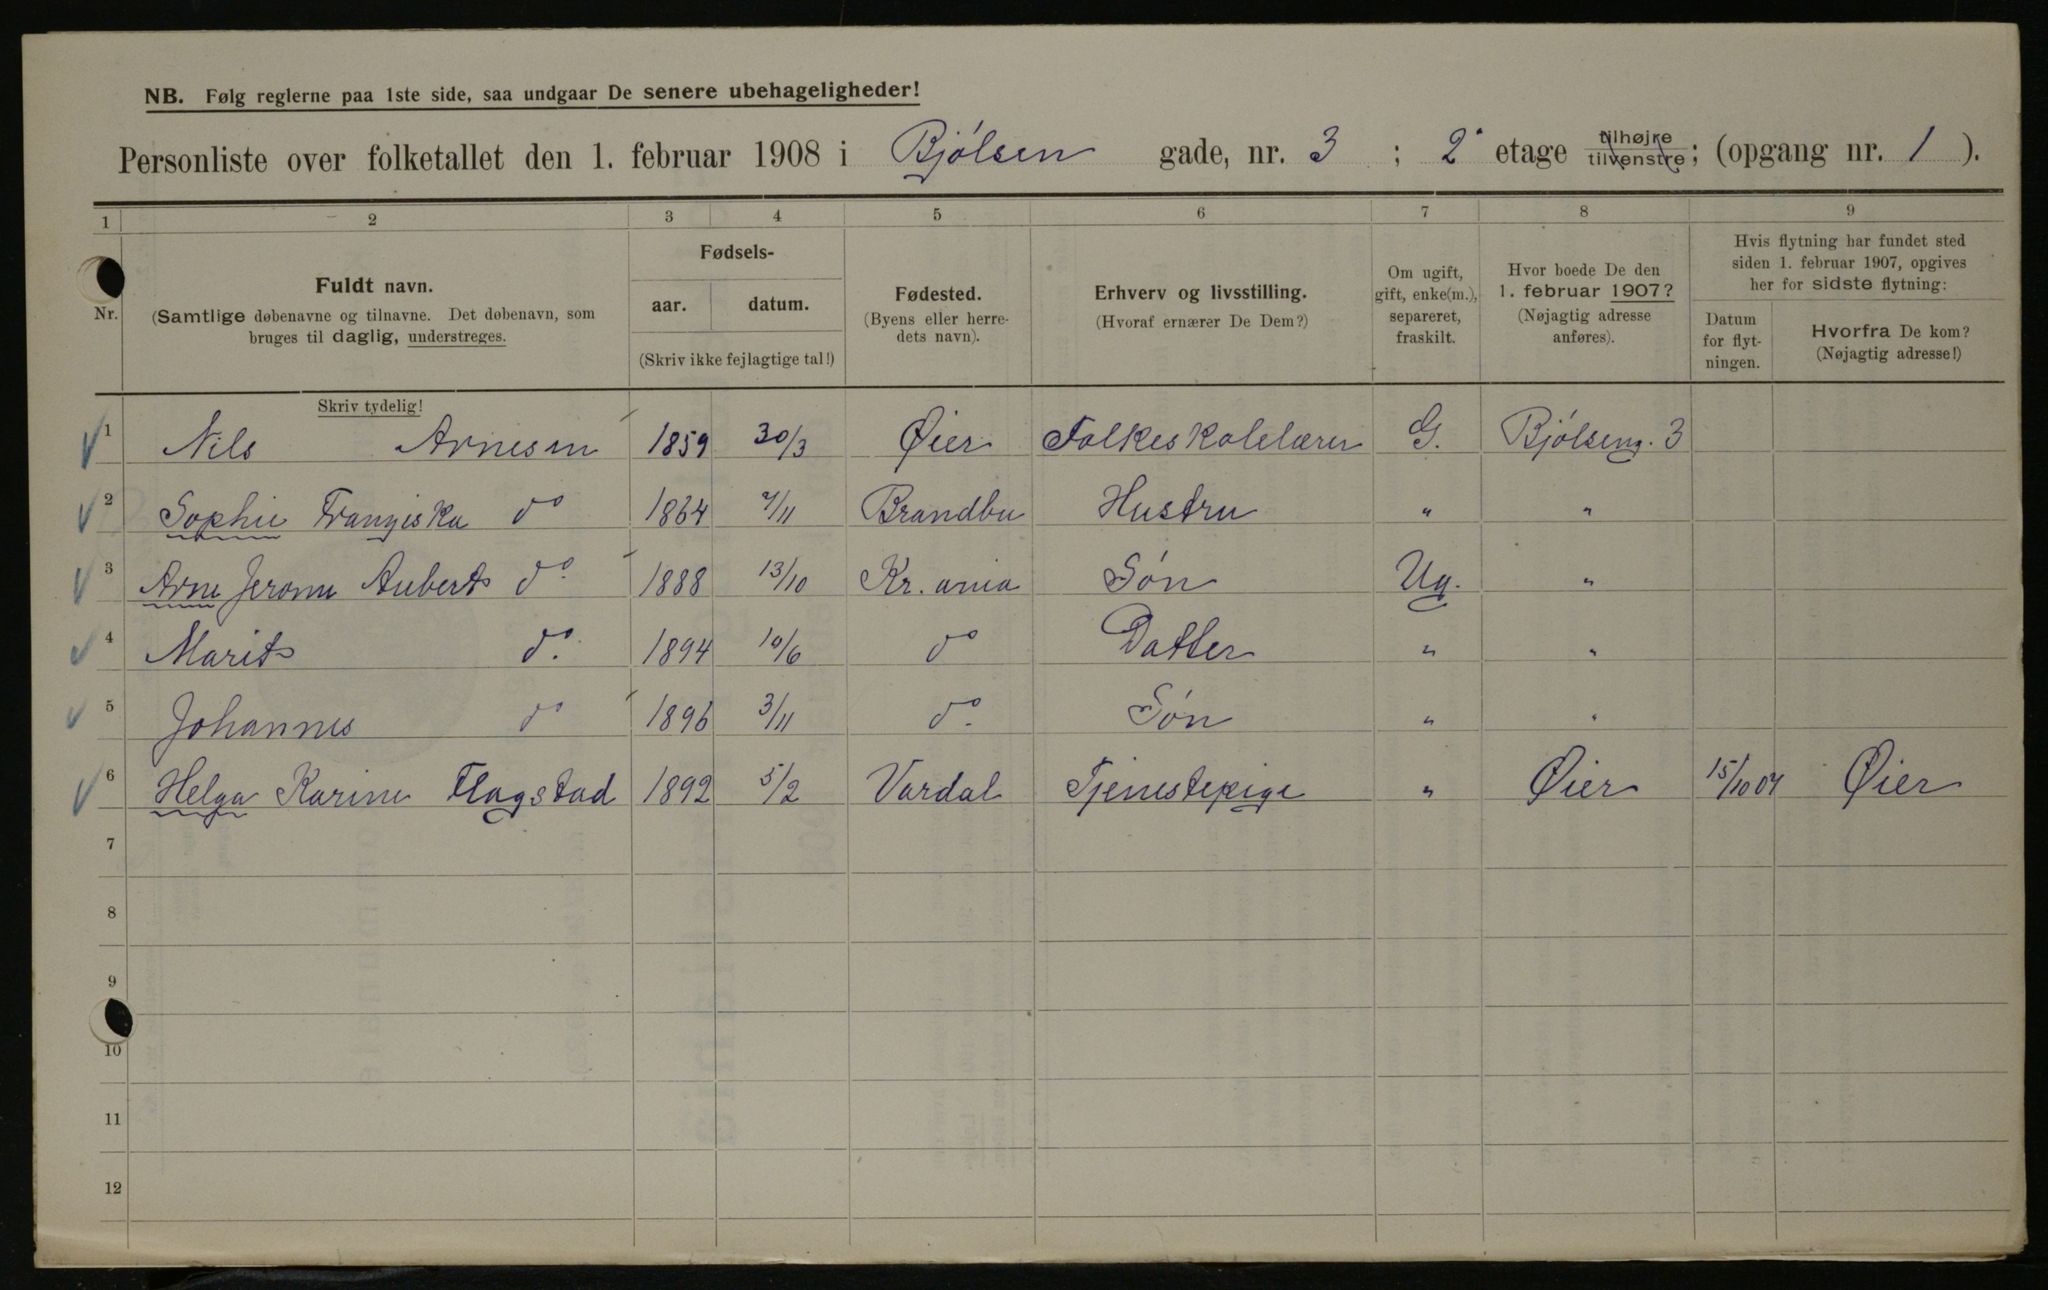 NB. Følg reglerne paa 1ste side, saa undgaar De senere ubehageligheder!
Personliste over folketallet den 1. februar 1908 i Bjølsen gade, nr. 3 ; 2' etage tilhøjre tilvenstre ; (opgang nr. 1 ).
1 2 3 4 5 6 7 8 9
Nr.
Fuldt navn.
(Samtlige døbenavne og tilnavne. Det døbenavn, som
bruges til daglig, understreges.
Skriv tydelig!
Fødsels-
aar. datum.
(Skriv ikke fejlagtige tal!)
Fødested.
(Byens eller herre-
dets navn).
Erhverv og livsstilling.
(Hvoraf ernærer De Dem?)
Om ugift,
gift, enke(m.),
separeret,
fraskilt.
Hvor boede De den
1. februar 1907?
(Nøjagtig adresse
anføres).
Hvis flytning har fundet sted
siden 1. februar 1907, opgives
her for sidste flytning:
Datum
for flyt-
ningen.
Hvorfra De kom?
(Nøjagtig adresse!)
1 Nils Arnesen 1859 30/3 Øier Folkeskolelærer G. Bjølseng. 3
2 Sophie Franziska do 1864 7/11 Brandbu Hustru " "
3 Arne Jerome Aubert do. 1888 13/10 Kr.ania Søn Ug. "
4 Marit do. 1894 10/6 do Datter " "
5 Johannes do 1896 3/11 do. Søn " "
6 Helga Karine Flagstad 1892 5/2 Vardal Tjenestepige " Øier 15/10 07 Øier
7
8
9
10
11
12